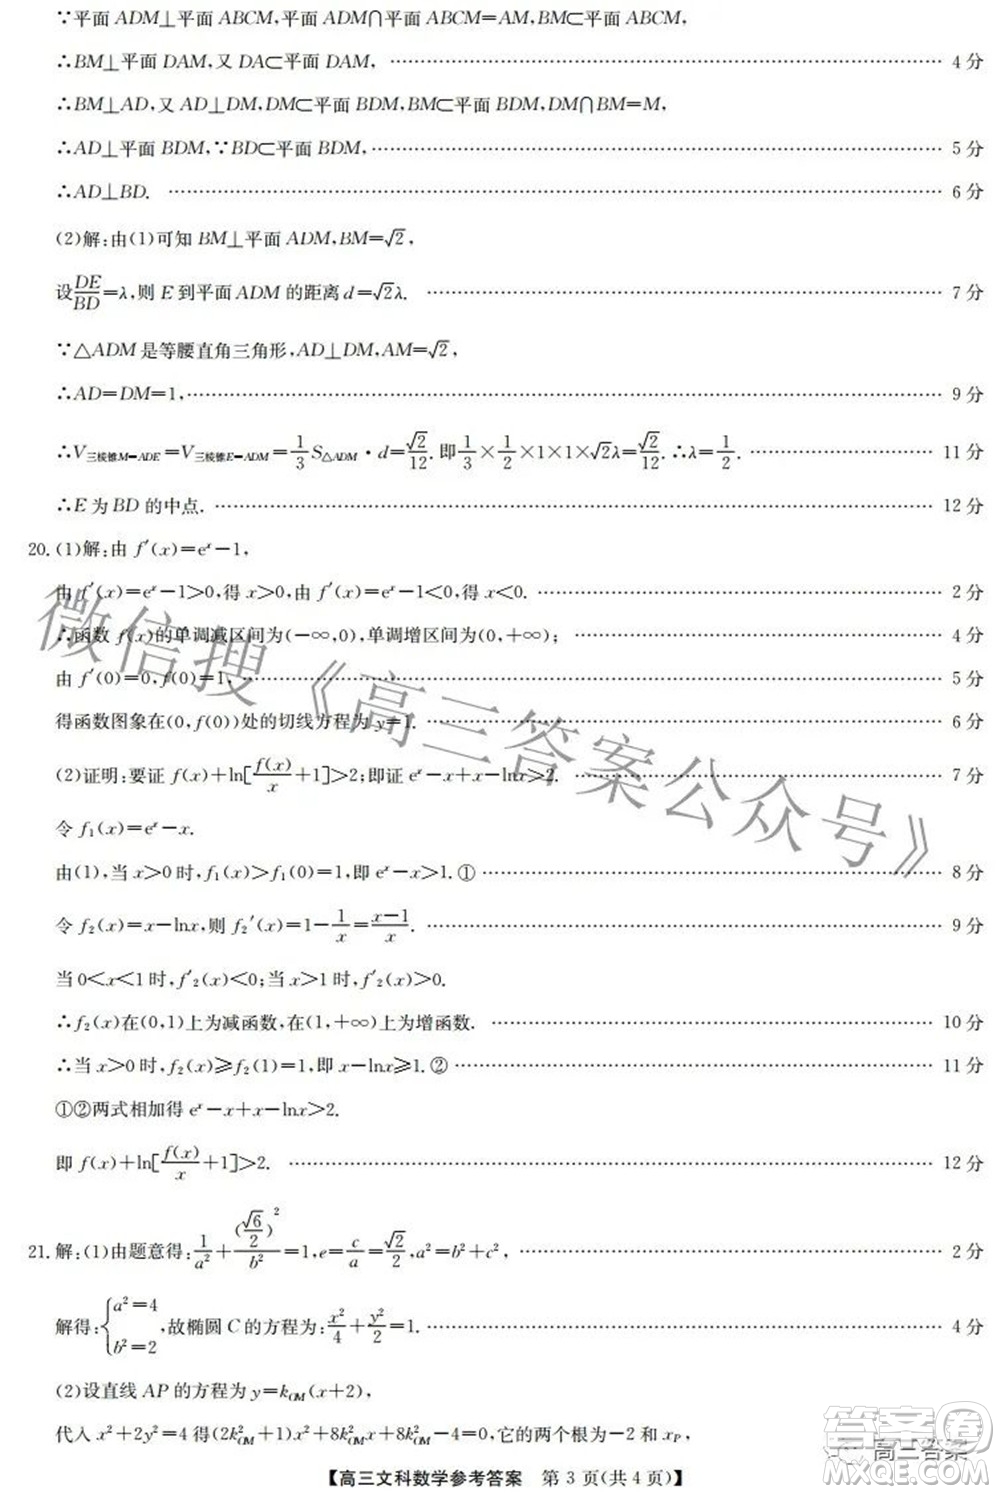 ∵平面 ADM⊥平面 ABCM,平面 ADM∩平面 ABCM=AM,BM⊂平面 ABCM,
∴BM⊥平面 DAM,又 DA⊂平面 DAM, …… 4 分
∴BM⊥AD,又 AD⊥DM,DM⊂平面 BDM,BM⊂平面 BDM,DM∩BM=M,
∴AD⊥平面 BDM,∵BD⊂平面 BDM, …… 5 分
∴AD⊥BD. …… 6 分
(2)解:由(1)可知 BM⊥平面 ADM,BM=√2,
设DE/BD=λ,则 E 到平面 ADM 的距离 d=√2λ. …… 7 分
∵△ADM 是等腰直角三角形,AD⊥DM,AM=√2,
∴AD=DM=1, …… 9 分
∴V三棱锥M-ADE=V三棱锥E-ADM=1/3 S△ADM·d=√2/12.即1/3×1/2×1×1×√2λ=√2/12.∴λ=1/2. …… 11 分
∴E 为 BD 的中点. …… 12 分
20.(1)解:由 f′(x)=eˣ-1,
由 f′(x)=eˣ-1>0,得 x>0,由 f′(x)=eˣ-1<0,得 x<0. …… 2 分
∴函数 f(x)的单调减区间为(-∞,0),单调增区间为(0,+∞); …… 4 分
由 f′(0)=0,f(0)=1, …… 5 分
得函数图象在(0,f(0))处的切线方程为 y=1. …… 6 分
(2)证明:要证 f(x)+ln[f(x)/x+1]>2;即证 eˣ-x+x-lnx>2. …… 7 分
令 f₁(x)=eˣ-x.
由(1),当 x>0 时,f₁(x)>f₁(0)=1,即 eˣ-x>1.① …… 8 分
令 f₂(x)=x-lnx,则 f₂′(x)=1-1/x=(x-1)/x. …… 9 分
当 0<x<1 时,f′₂(x)<0;当 x>1 时,f′₂(x)>0.
∴f₂(x)在(0,1)上为减函数,在(1,+∞)上为增函数. …… 10 分
∴当 x>0 时,f₂(x)≥f₂(1)=1,即 x-lnx≥1.② …… 11 分
①②两式相加得 eˣ-x+x-lnx>2.
即 f(x)+ln[f(x)/x+1]>2. …… 12 分
21.解:(1)由题意得:1/a²+(√6/2)²/b²=1,e=c/a=√2/2,a²=b²+c², …… 2 分
解得:{a²=4
b²=2,故椭圆 C 的方程为:x²/4+y²/2=1. …… 4 分
(2)设直线 AP 的方程为 y=k_OM(x+2),
代入 x²+2y²=4 得(2k²_OM+1)x²+8k²_OM x+8k²_OM-4=0,它的两个根为-2 和 x_P,
【高三文科数学参考答案 第 3 页(共 4 页)】
微信搜《高三答案公众号》
高三答案
答案圈
MXQE.COM